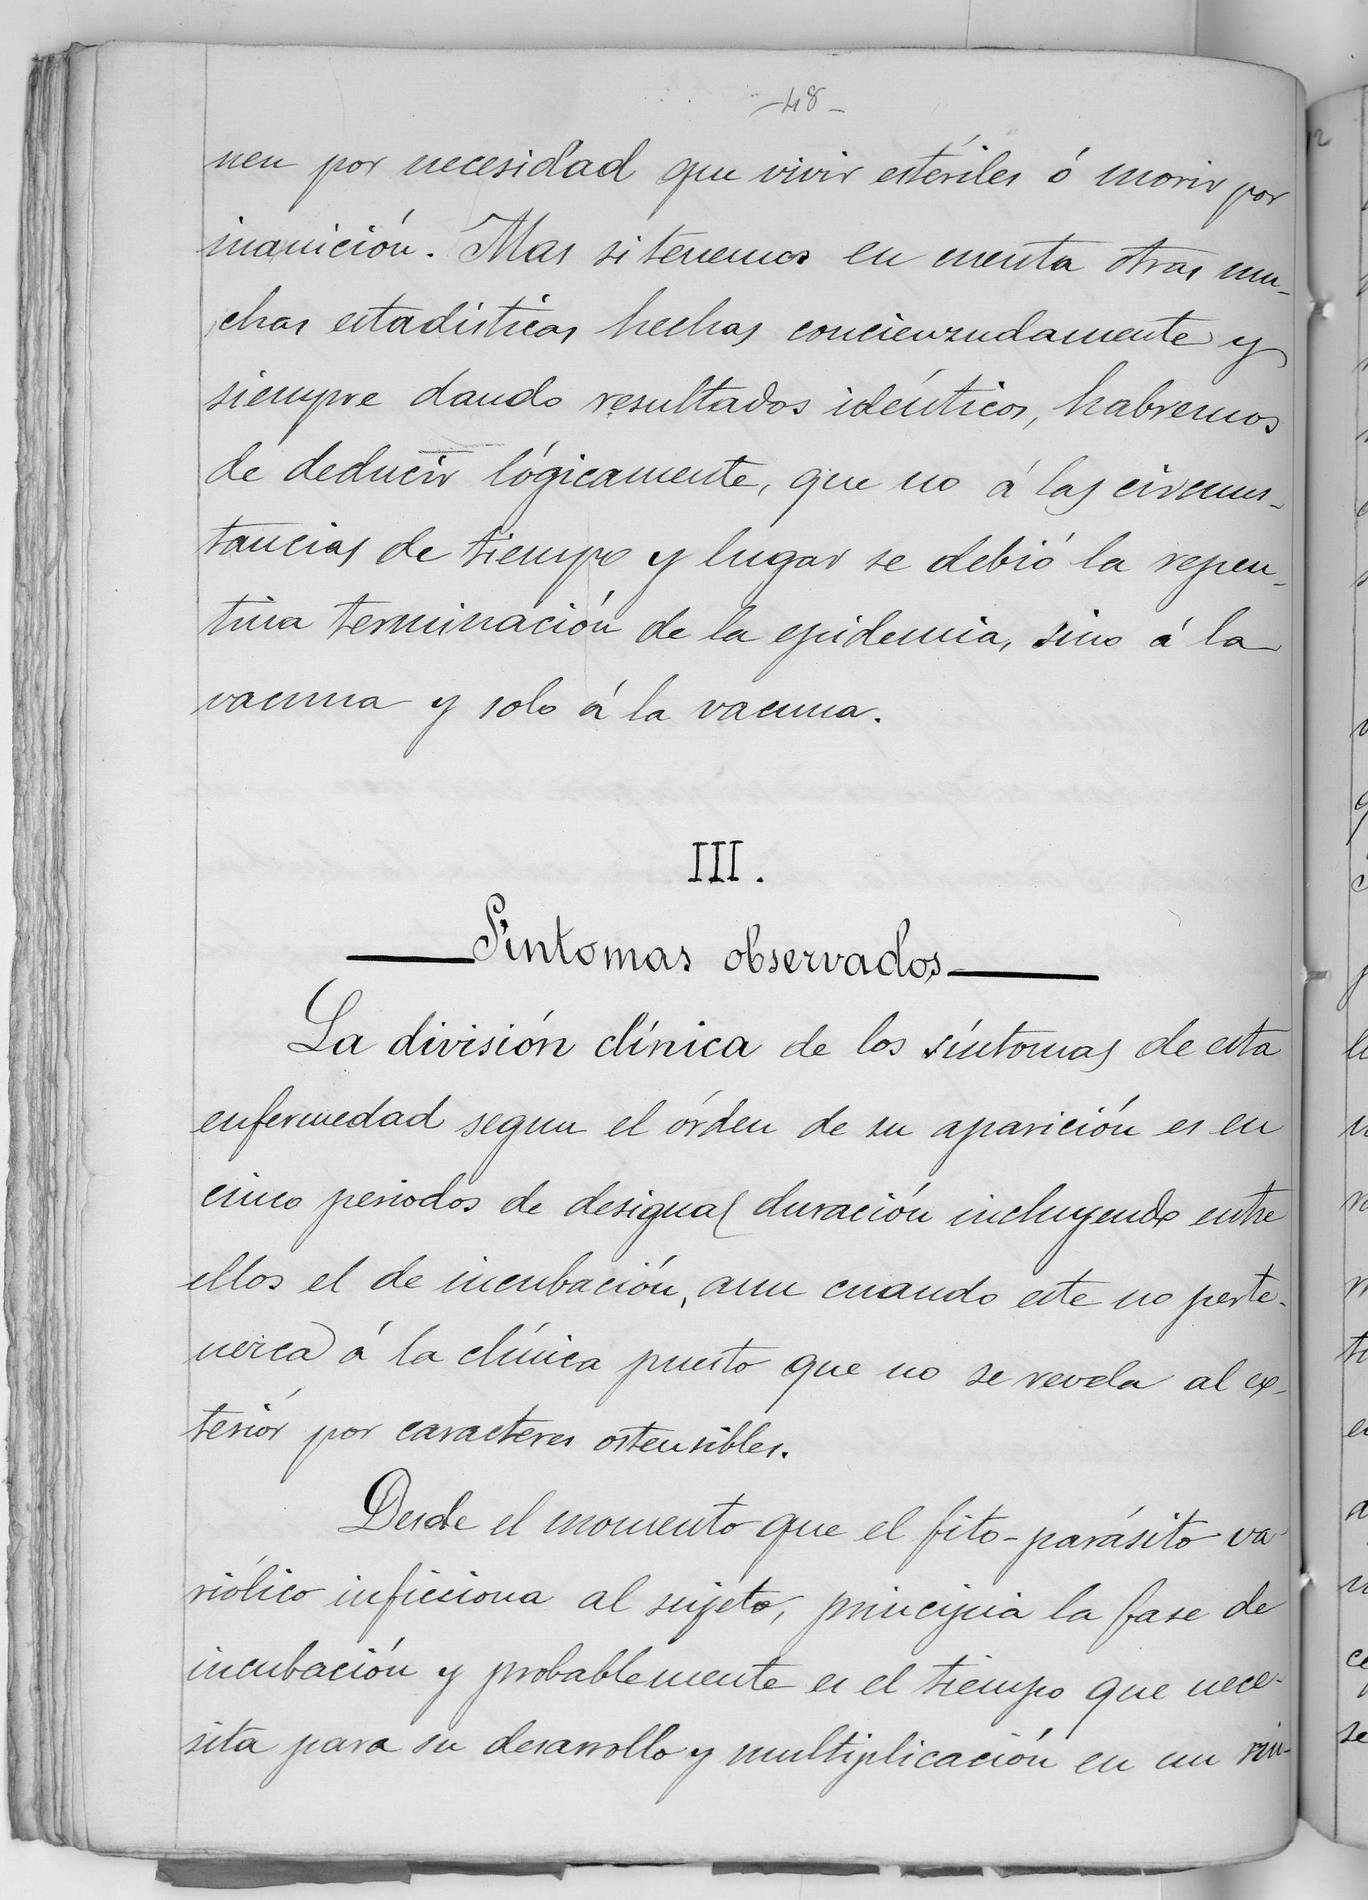 -48-
nen por necesidad que vivir estériles ó morir por
inanición. Mas si tenemos en cuenta otras mu-
chas estadísticas hechas concienzudamente y
siempre dando resultados idénticos, habremos
de deducir lógicamente, que no á las circuns-
tancias de tiempo y lugar se debió la repen-
tina terminación de la epidemia, sino á la
vacuna y solo á la vacuna.
III.
Síntomas observados
La división clínica de los síntomas de esta
enfermedad segun el órden de su aparición es en
cinco periodos de desigual duración incluyendo entre
ellos el de incubación, aun cuando este no perte-
nezca á la clínica puesto que no se revela al ex-
teriór por caracteres ostensibles.
Desde el momento que el fito-parásito va-
riólico inficciona al sujeto, principia la fase de
incubación y probablemente es el tiempo que nece-
sita para su desarrollo y multiplicación en un